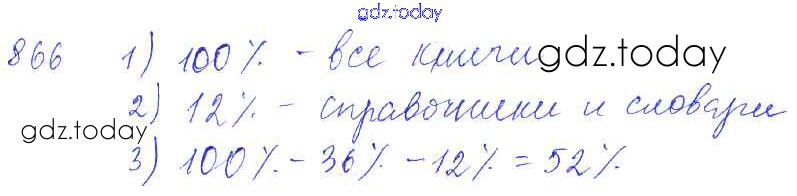 gdz.today
866 1) 100% - все книги gdz.today
2) 12% - справочники и словари
gdz.today
3) 100% - 36% - 12% = 52%